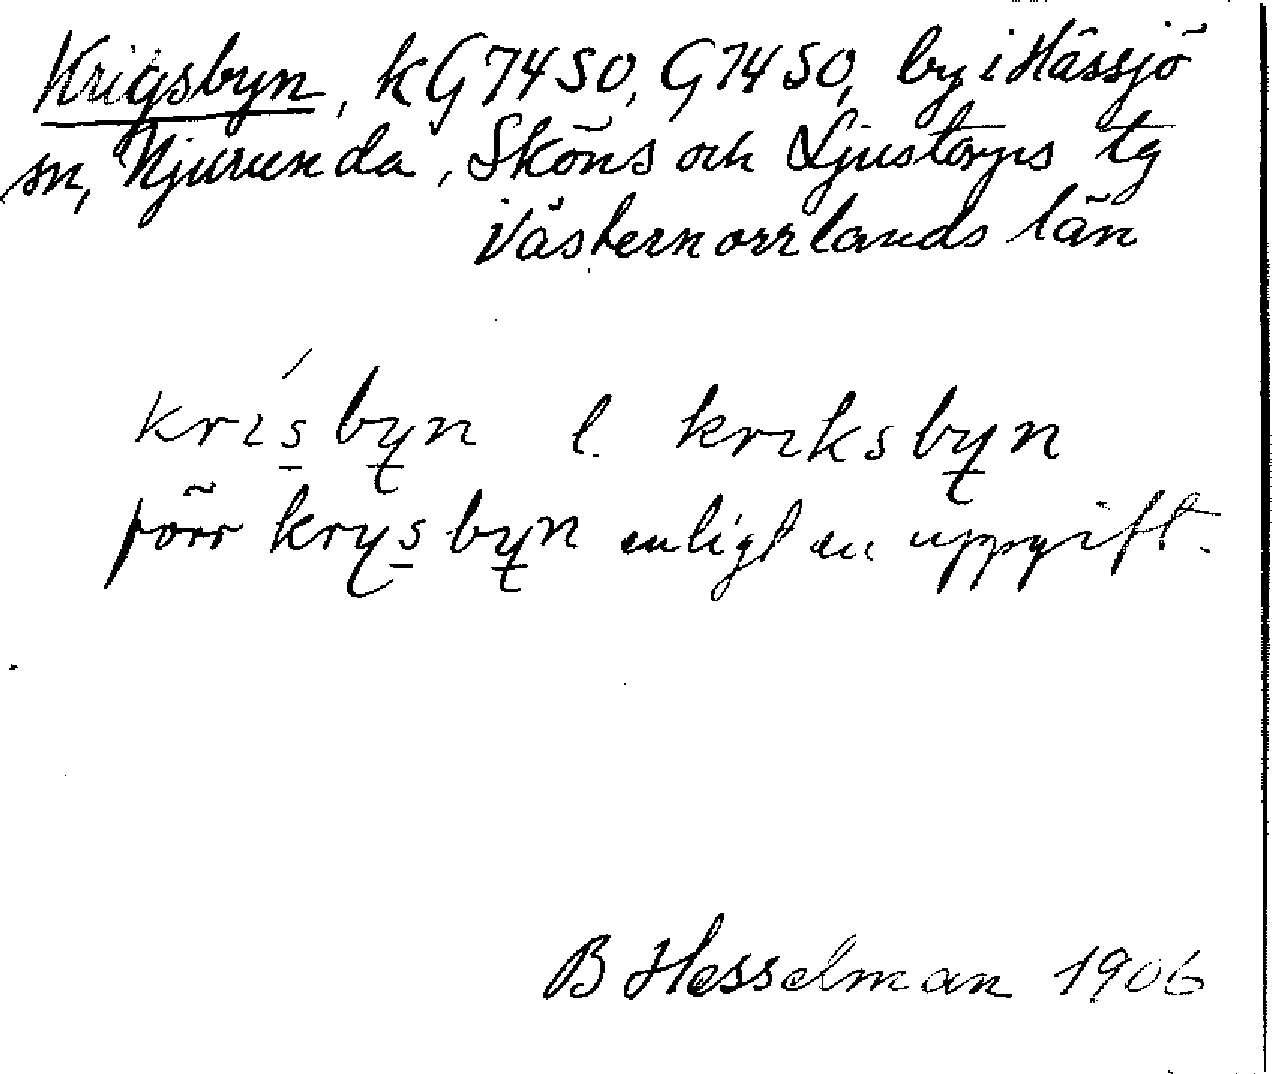 Krigsbyn, KG7450, G7450, by i Hässjö
sn, Njurunda, Sköns och Ljustorps tg
i Västernorrlands län
krisbyn l. kriksbyn
förr krysbyn enligt en uppgift.
B Hesselman 1906